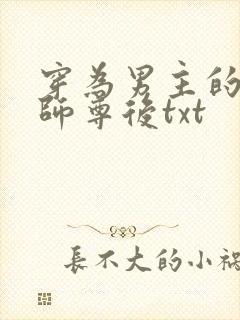 穿為男主的
師尊後txt
長不大的小禍